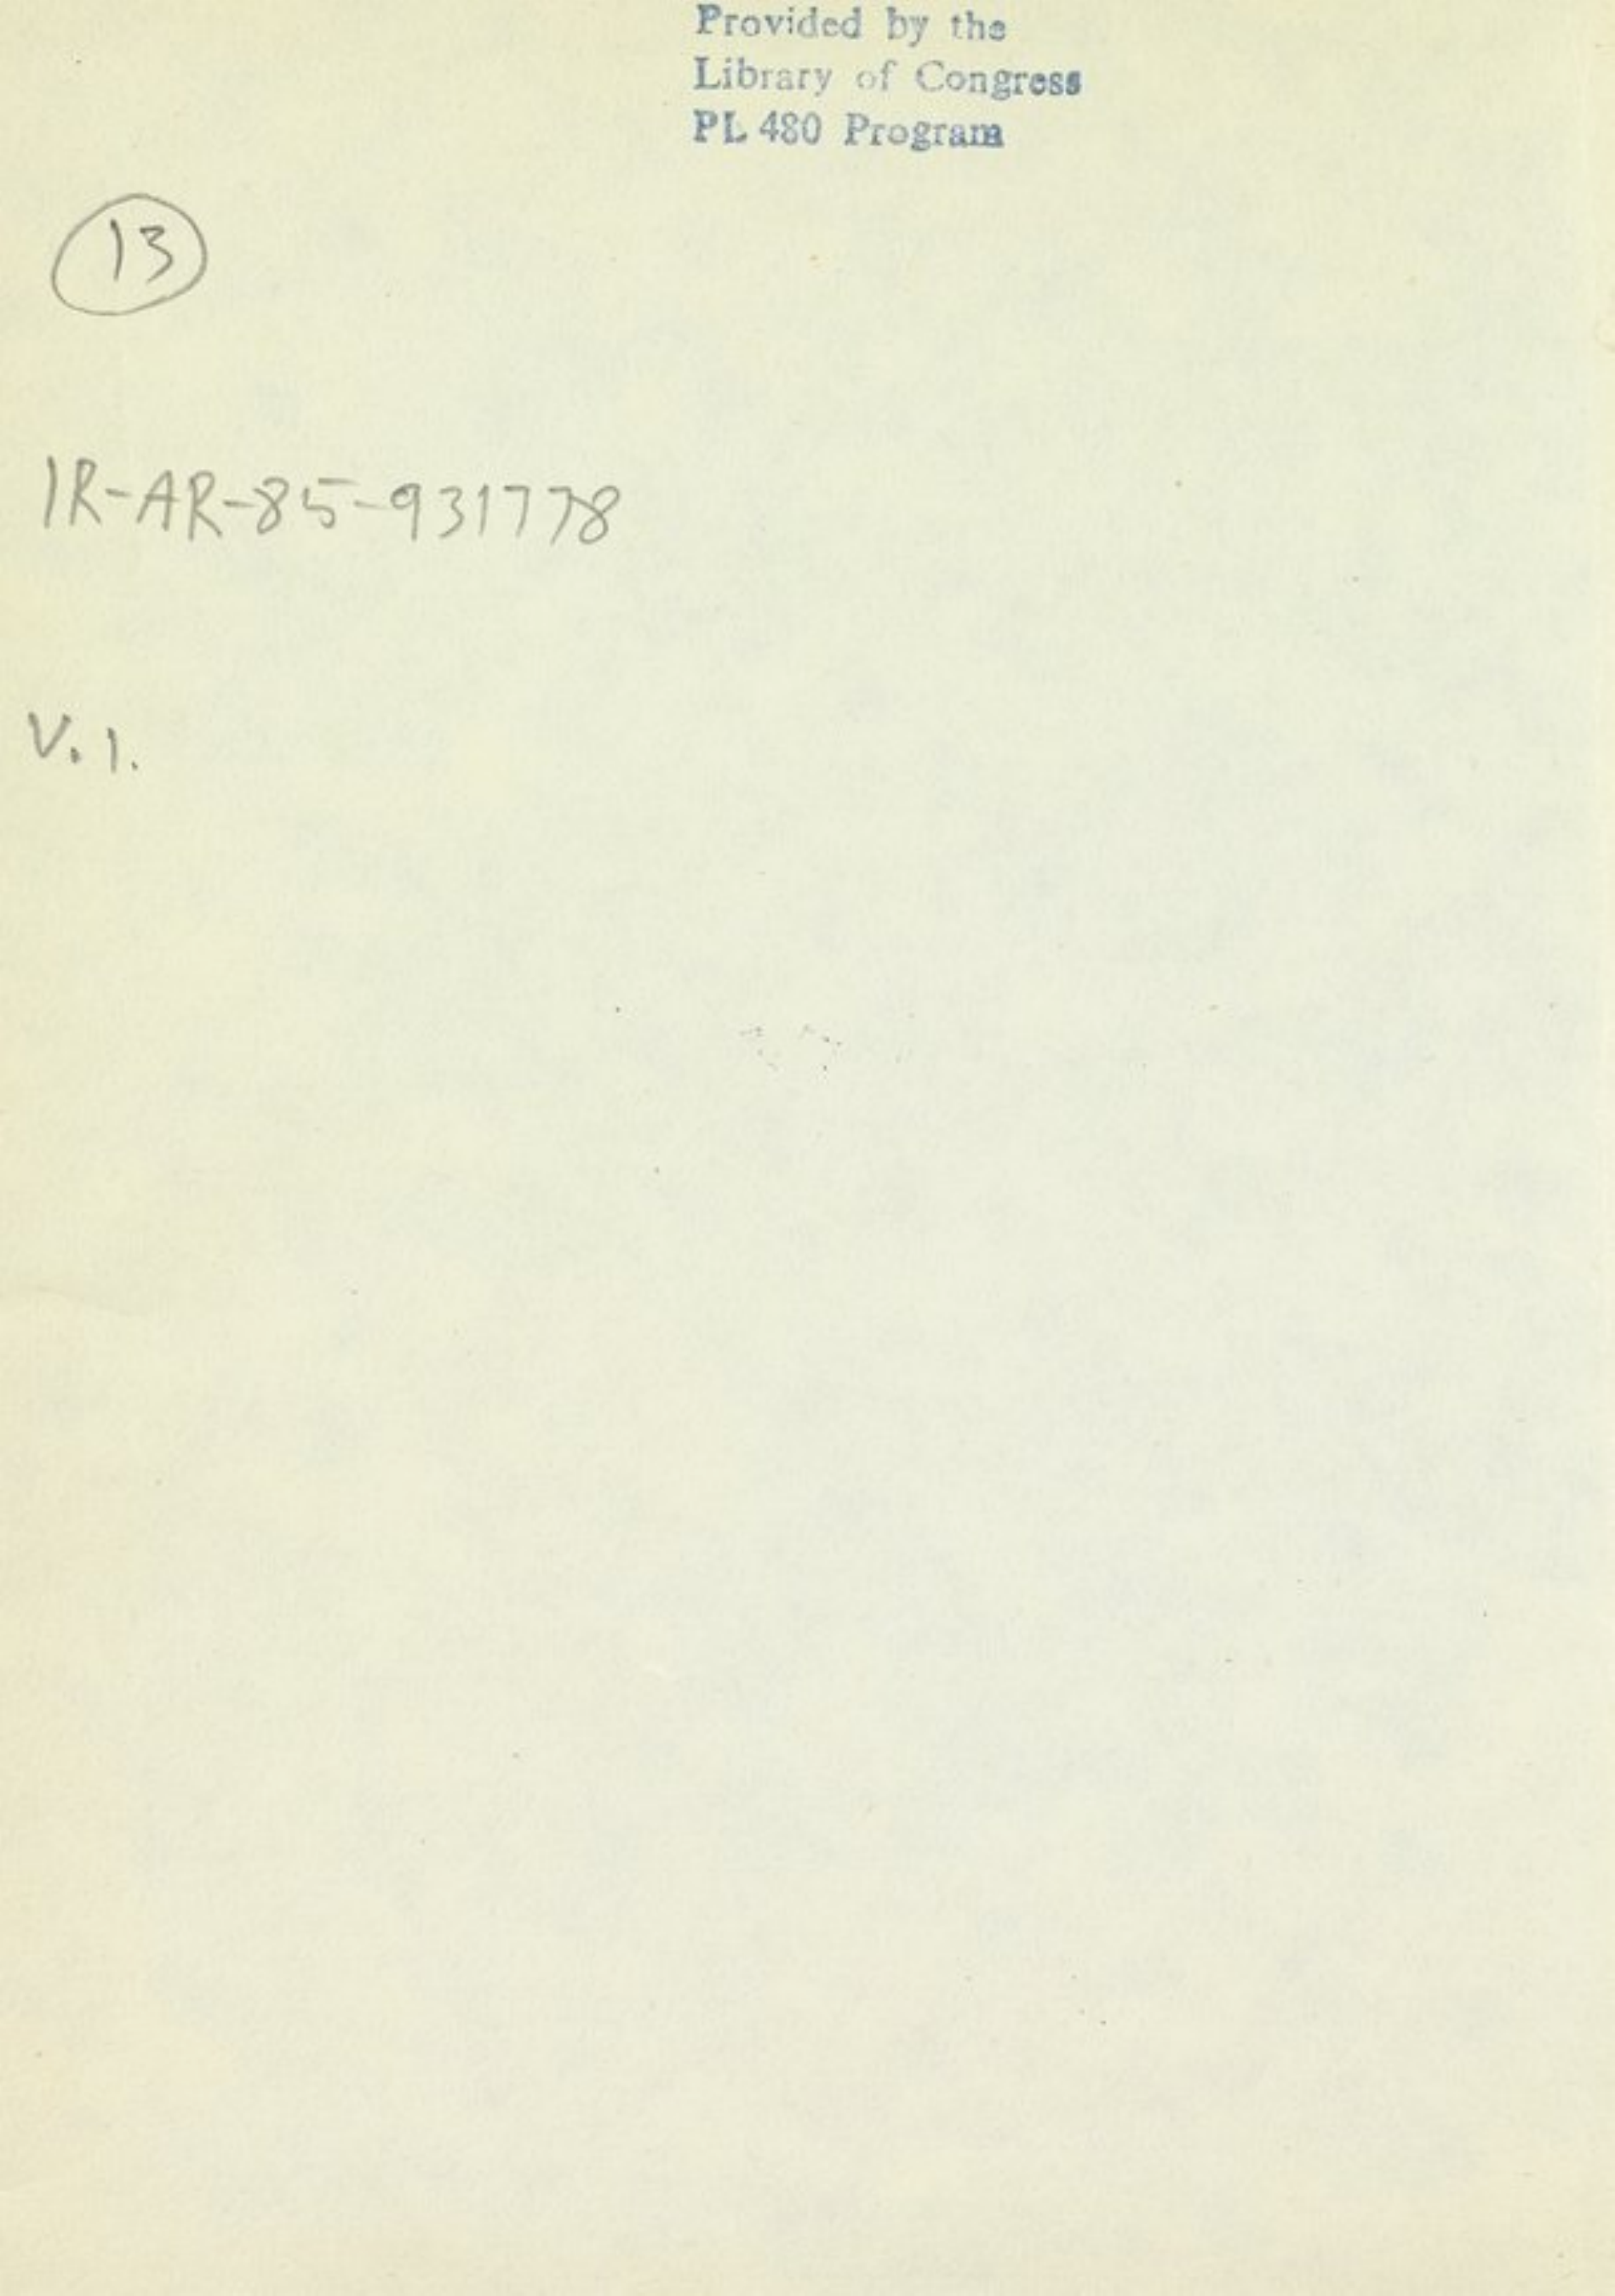 Provided by the
Library of Congress
PL 480 Program
13
IR-AR-85-931778
V.1.